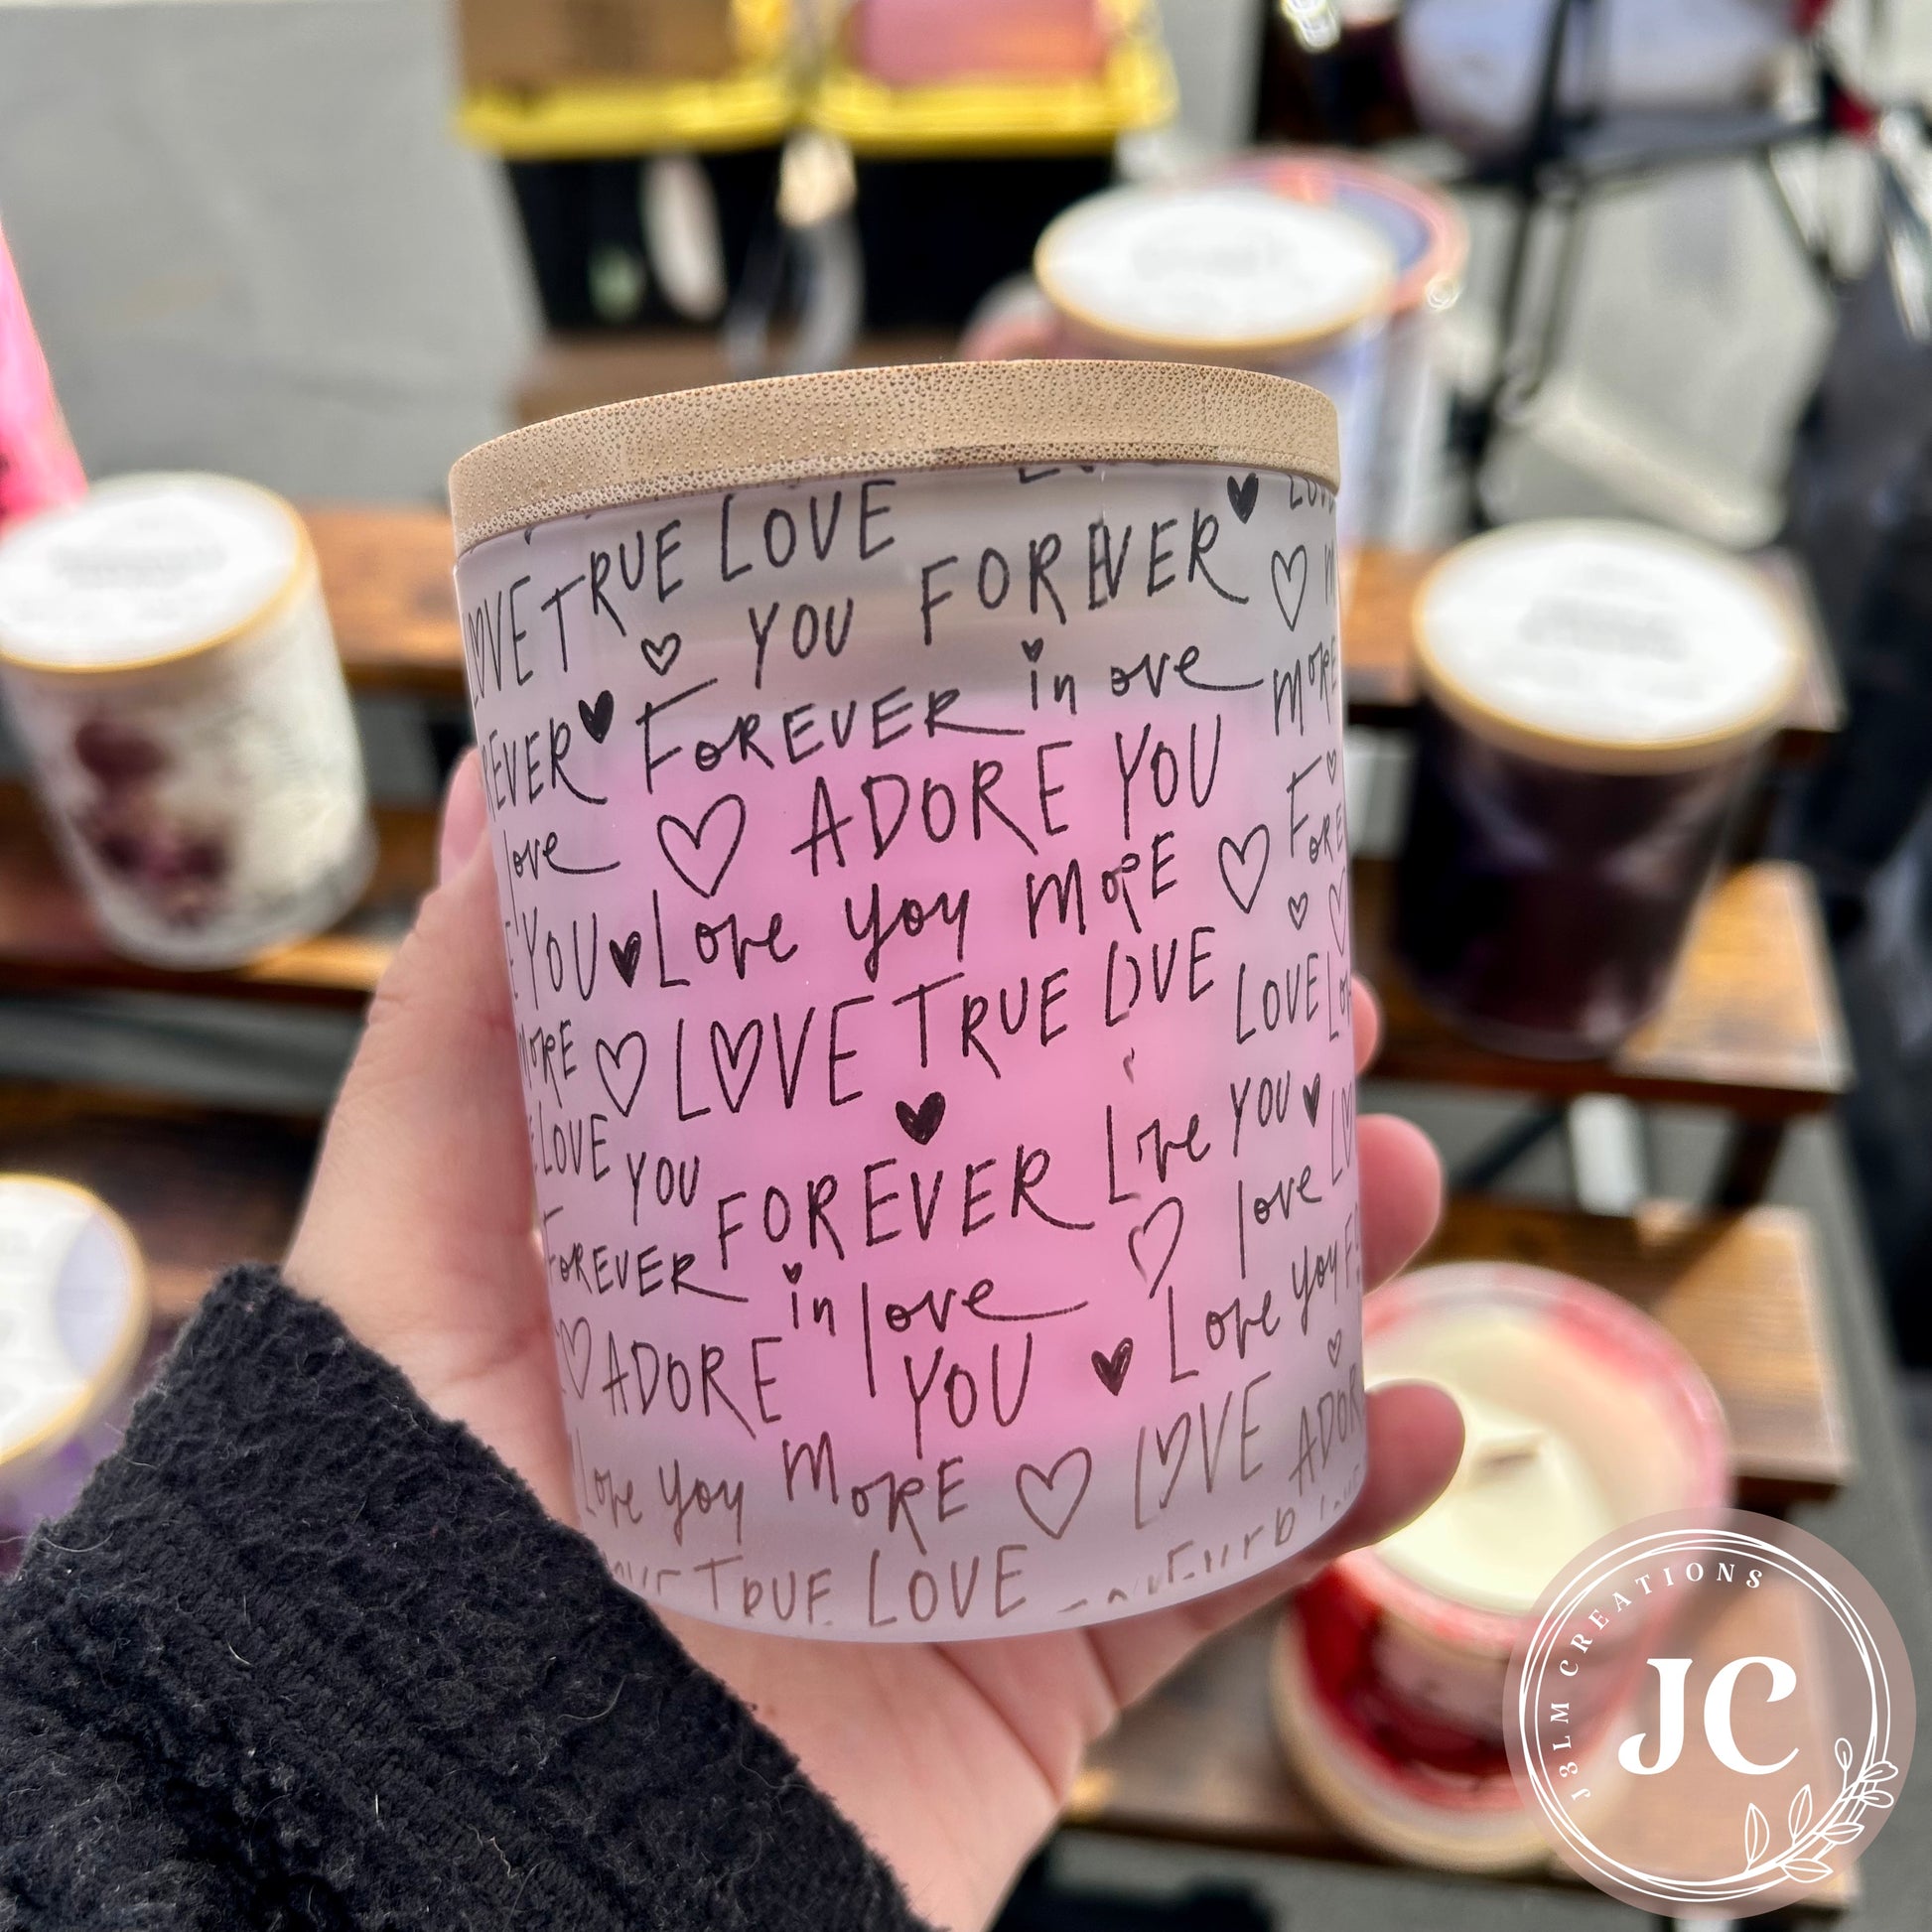 LOVE TRUE LOVE
YOU FOREVER
EVER FOREVER in ove
love ADORE YOU MORE
YOU Love you MORE FORE
MORE LOVE TRUE LOVE LOVE
LOVE YOU FOREVER Love YOU
FOREVER in love love
ADORE YOU Love you
Love you MORE LOVE ADOR
TRUE LOVE
J3LM CREATIONS
JC